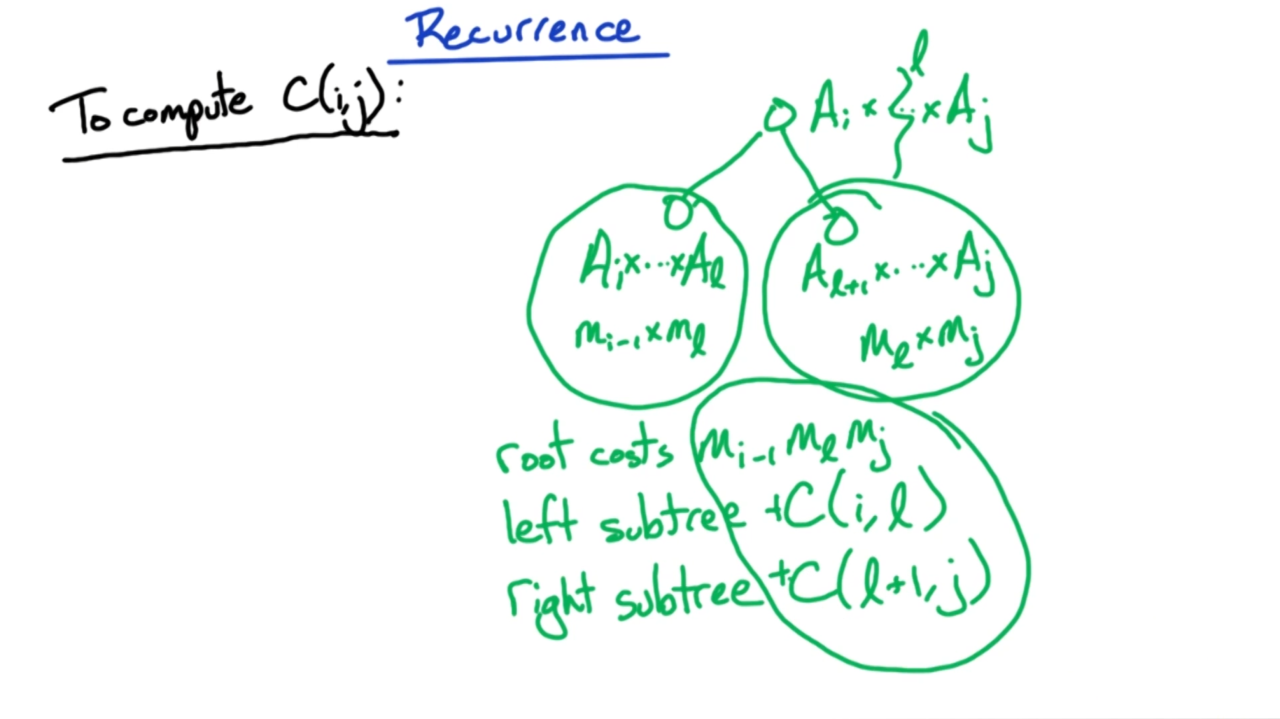 Recurrence
To compute C(i,j):
l
A_i × ... × A_j
A_i × ... × A_l
m_{i-1} × m_l
A_{l+1} × ... × A_j
m_l × m_j
root costs m_{i-1} m_l m_j
left subtree + C(i, l)
right subtree + C(l+1, j)